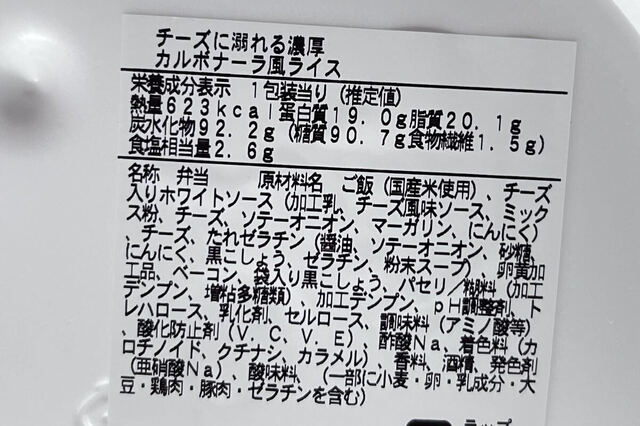 チーズに溺れる濃厚
カルボナーラ風ライス
栄養成分表示 1包装当り(推定値)
熱量623kcal蛋白質19.0g脂質20.1g
炭水化物92.2g(糖質90.7g食物繊維1.5g)
食塩相当量2.6g
名称 弁当 原材料名 ご飯(国産米使用)、チーズ
入りホワイトソース(加工乳、チーズ風味ソース、ミック
ス粉、チーズ、ソテーオニオン、マーガリン、にんにく)
、チーズ、たれゼラチン(醤油、ソテーオニオン、砂糖、
にんにく、黒こしょう、ゼラチン、粉末スープ)、卵黄加
工品、ベーコン、袋入り黒こしょう、パセリ/糊料(加工
デンプン、増粘多糖類)、加工デンプン、pH調整剤、ト
レハロース、乳化剤、セルロース、調味料(アミノ酸等)
、酸化防止剤(V.C、V.E)、酢酸Na、着色料(カ
ロチノイド、クチナシ、カラメル)、香料、酒精、発色剤
(亜硝酸Na)、酸味料、(一部に小麦・卵・乳成分・大
豆・鶏肉・豚肉・ゼラチンを含む)